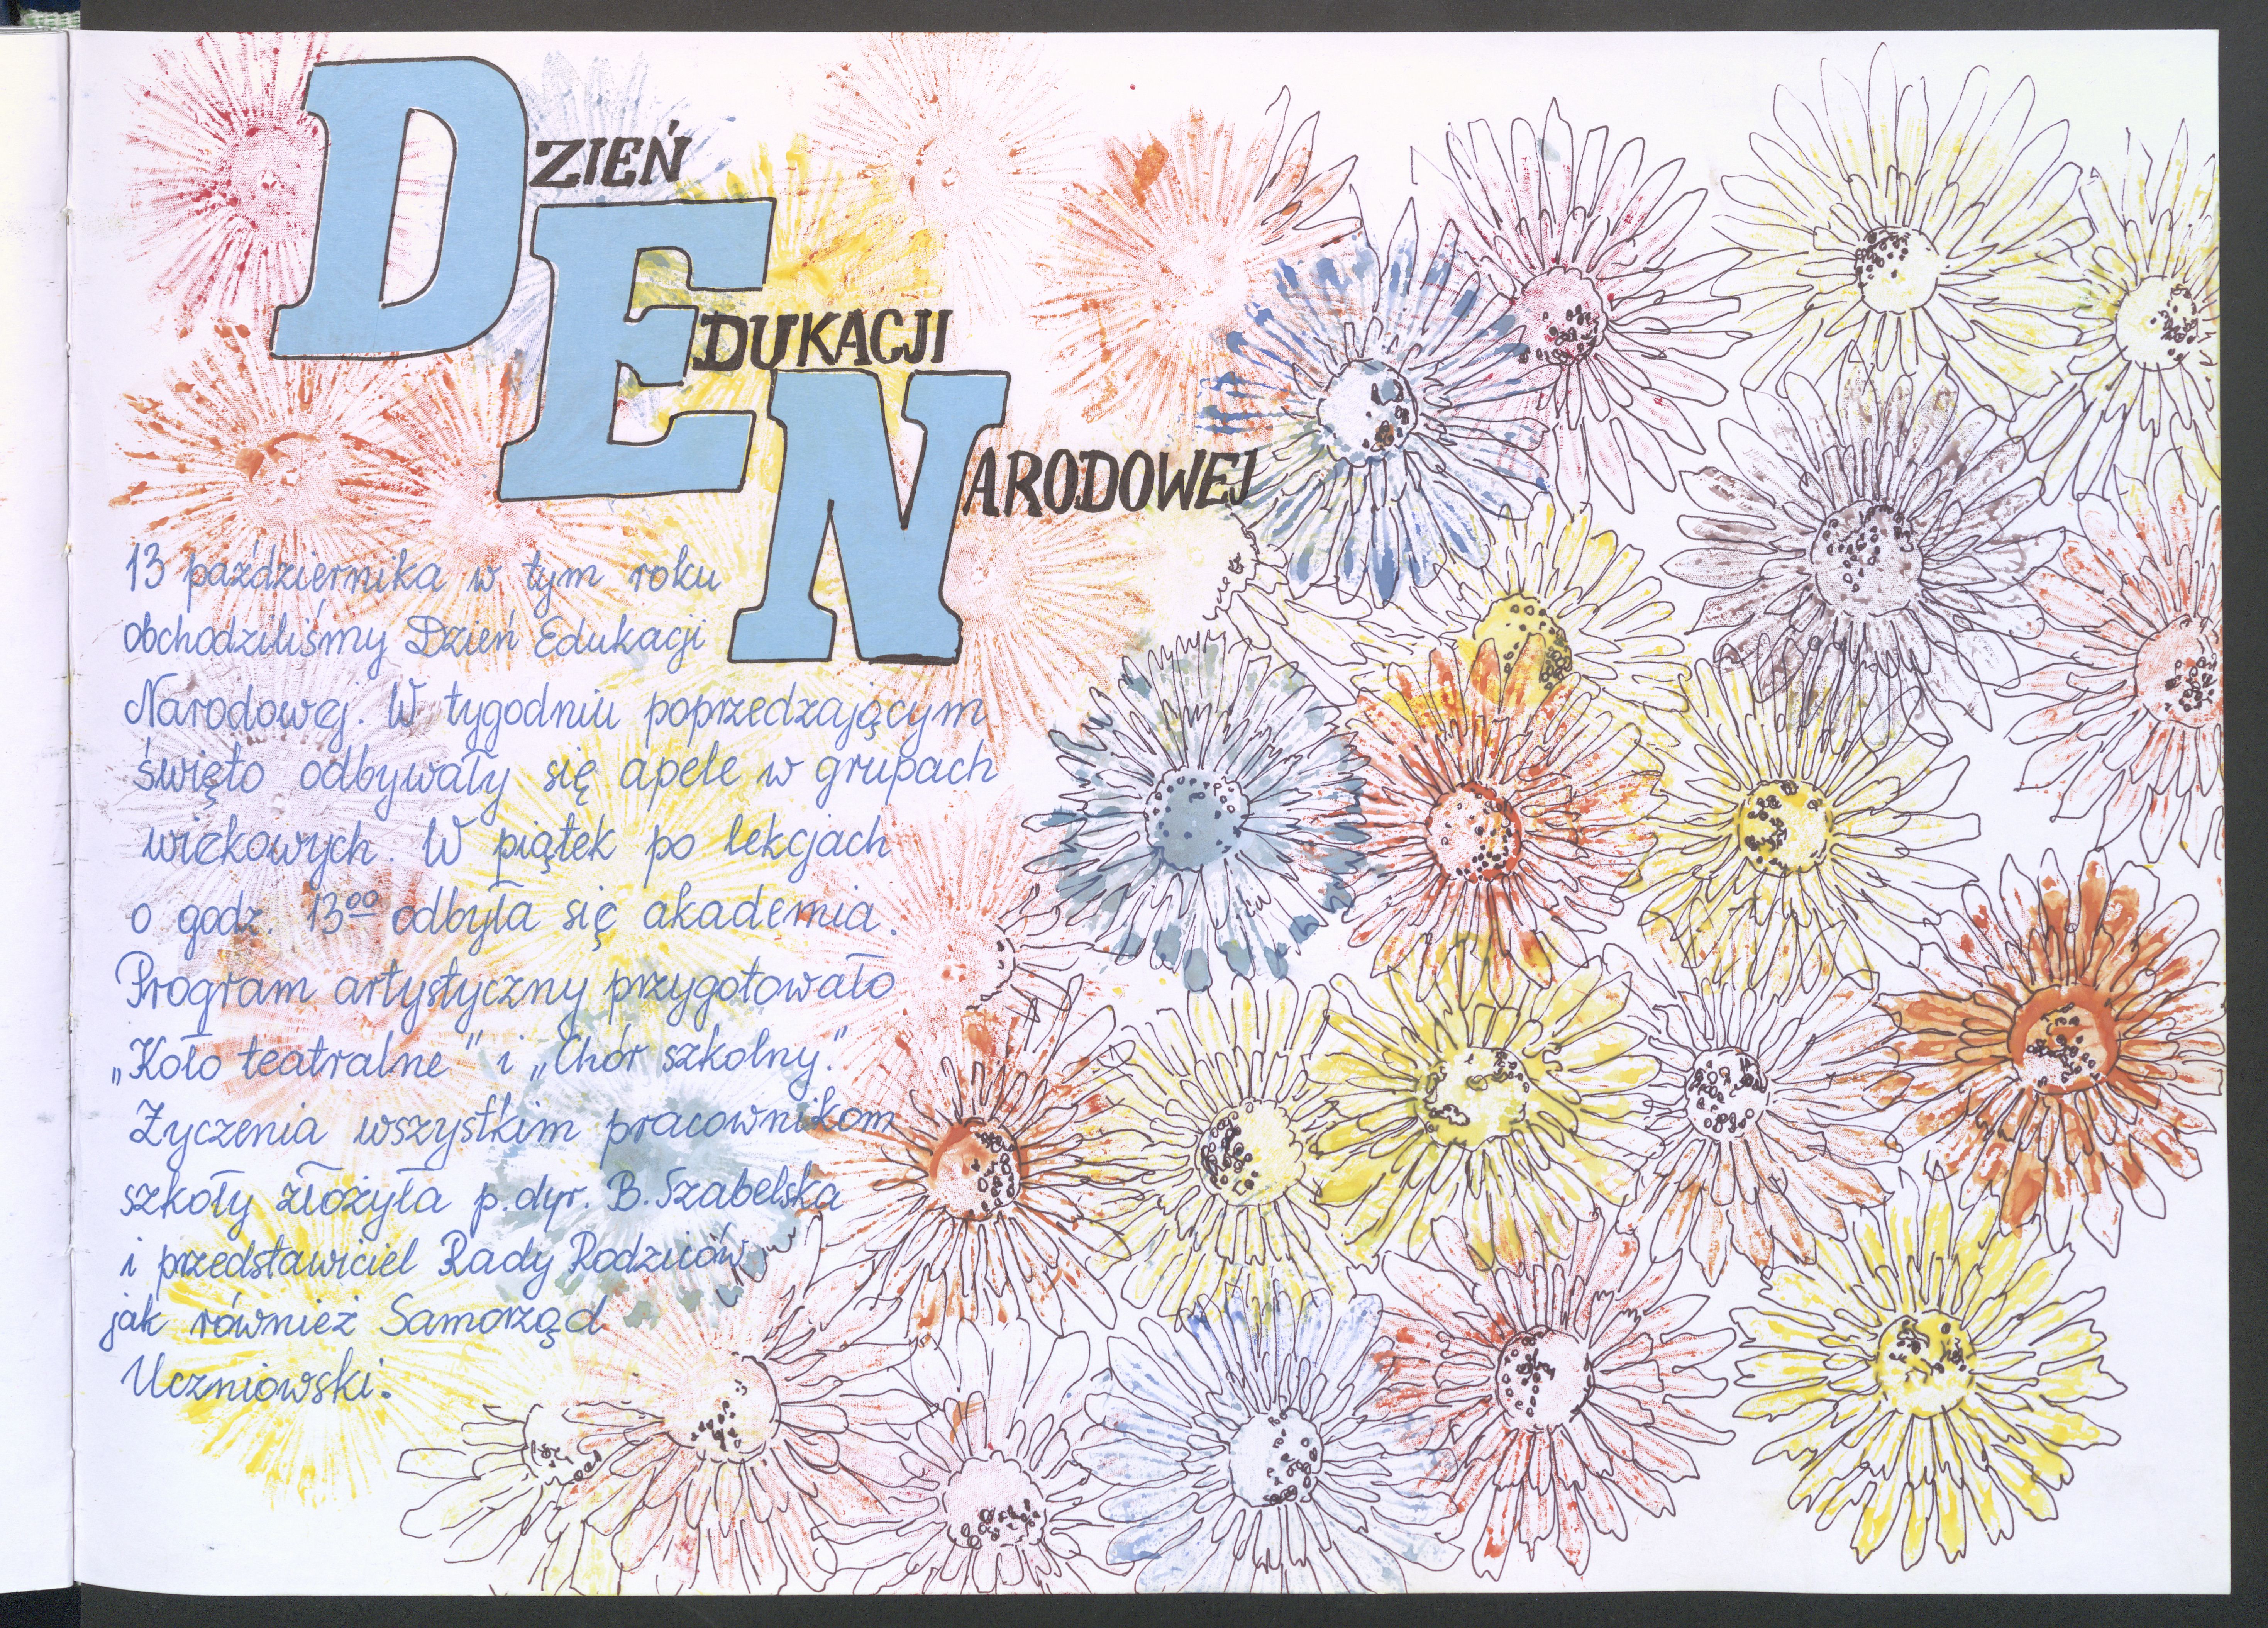 DZIEŃ
EDUKACJI
NARODOWEJ
13 października w tym roku
obchodziliśmy Dzień Edukacji
Narodowej. W tygodniu poprzedzającym
święto odbywały się apele w grupach
wiekowych. W piątek po lekcjach
o godz. 13⁰⁰ odbyła się akademia.
Program artystyczny przygotowało
„Koło teatralne" i „Chór szkolny."
Życzenia wszystkim pracownikom
szkoły złożyła p. dyr. B. Szabelska
i przedstawiciel Rady Rodziców
jak również Samorząd
Uczniowski.